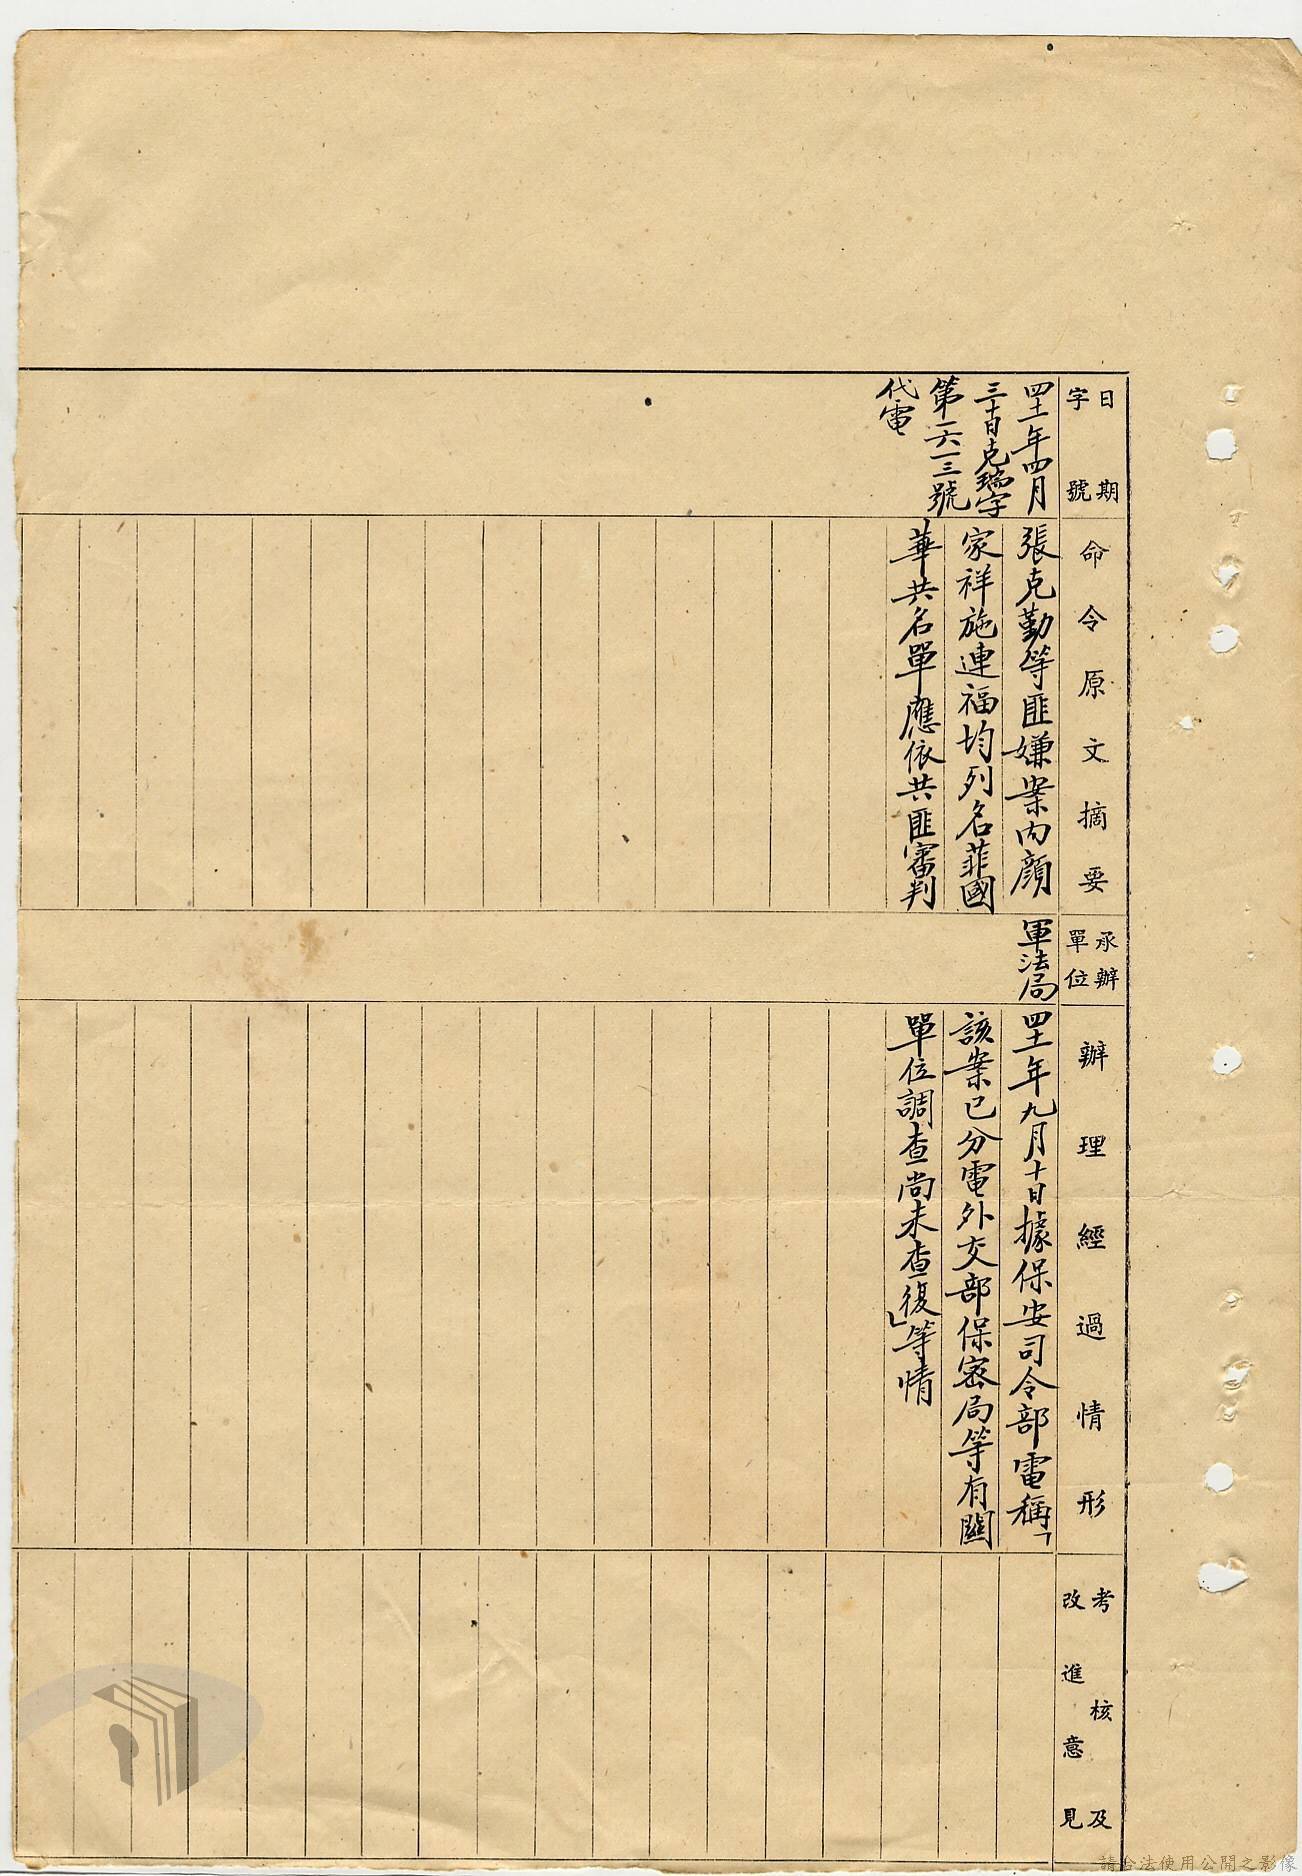 日期
字號
命令原文摘要
承辦
單位
辦理經過情形
考核及
改進意見
四十一年四月
三十日克瑞字
第一六一三號
代電
張克勤等匪嫌案內顏
家祥施連福均列名菲國
華共名單應依共匪審判
軍法局
四十一年九月十日據保安司令部電稱「
該案已分電外交部保密局等有關
單位調查尚未查復」等情
請合法使用公開之影像